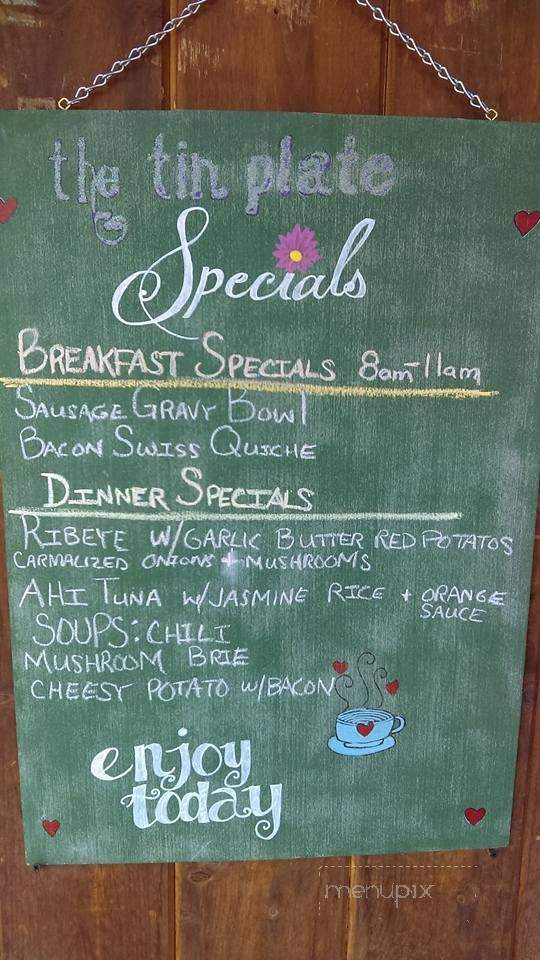 the tin plate
Specials
BREAKFAST SPECIALS 8am-11am
SAUSAGE GRAVY BOWl
BACON SWISS QUICHE
DINNER SPECIALS
RIBEYE W/GARLIC BUTTER RED POTATOS
CARMALIZED ONIONS + MUSHROOMS
AHI TUNA W/JASMINE RICE + ORANGE
SAUCE
SOUPS: CHILI
MUSHROOM BRIE
CHEESY POTATO W/BACON
enjoy
today
menupix